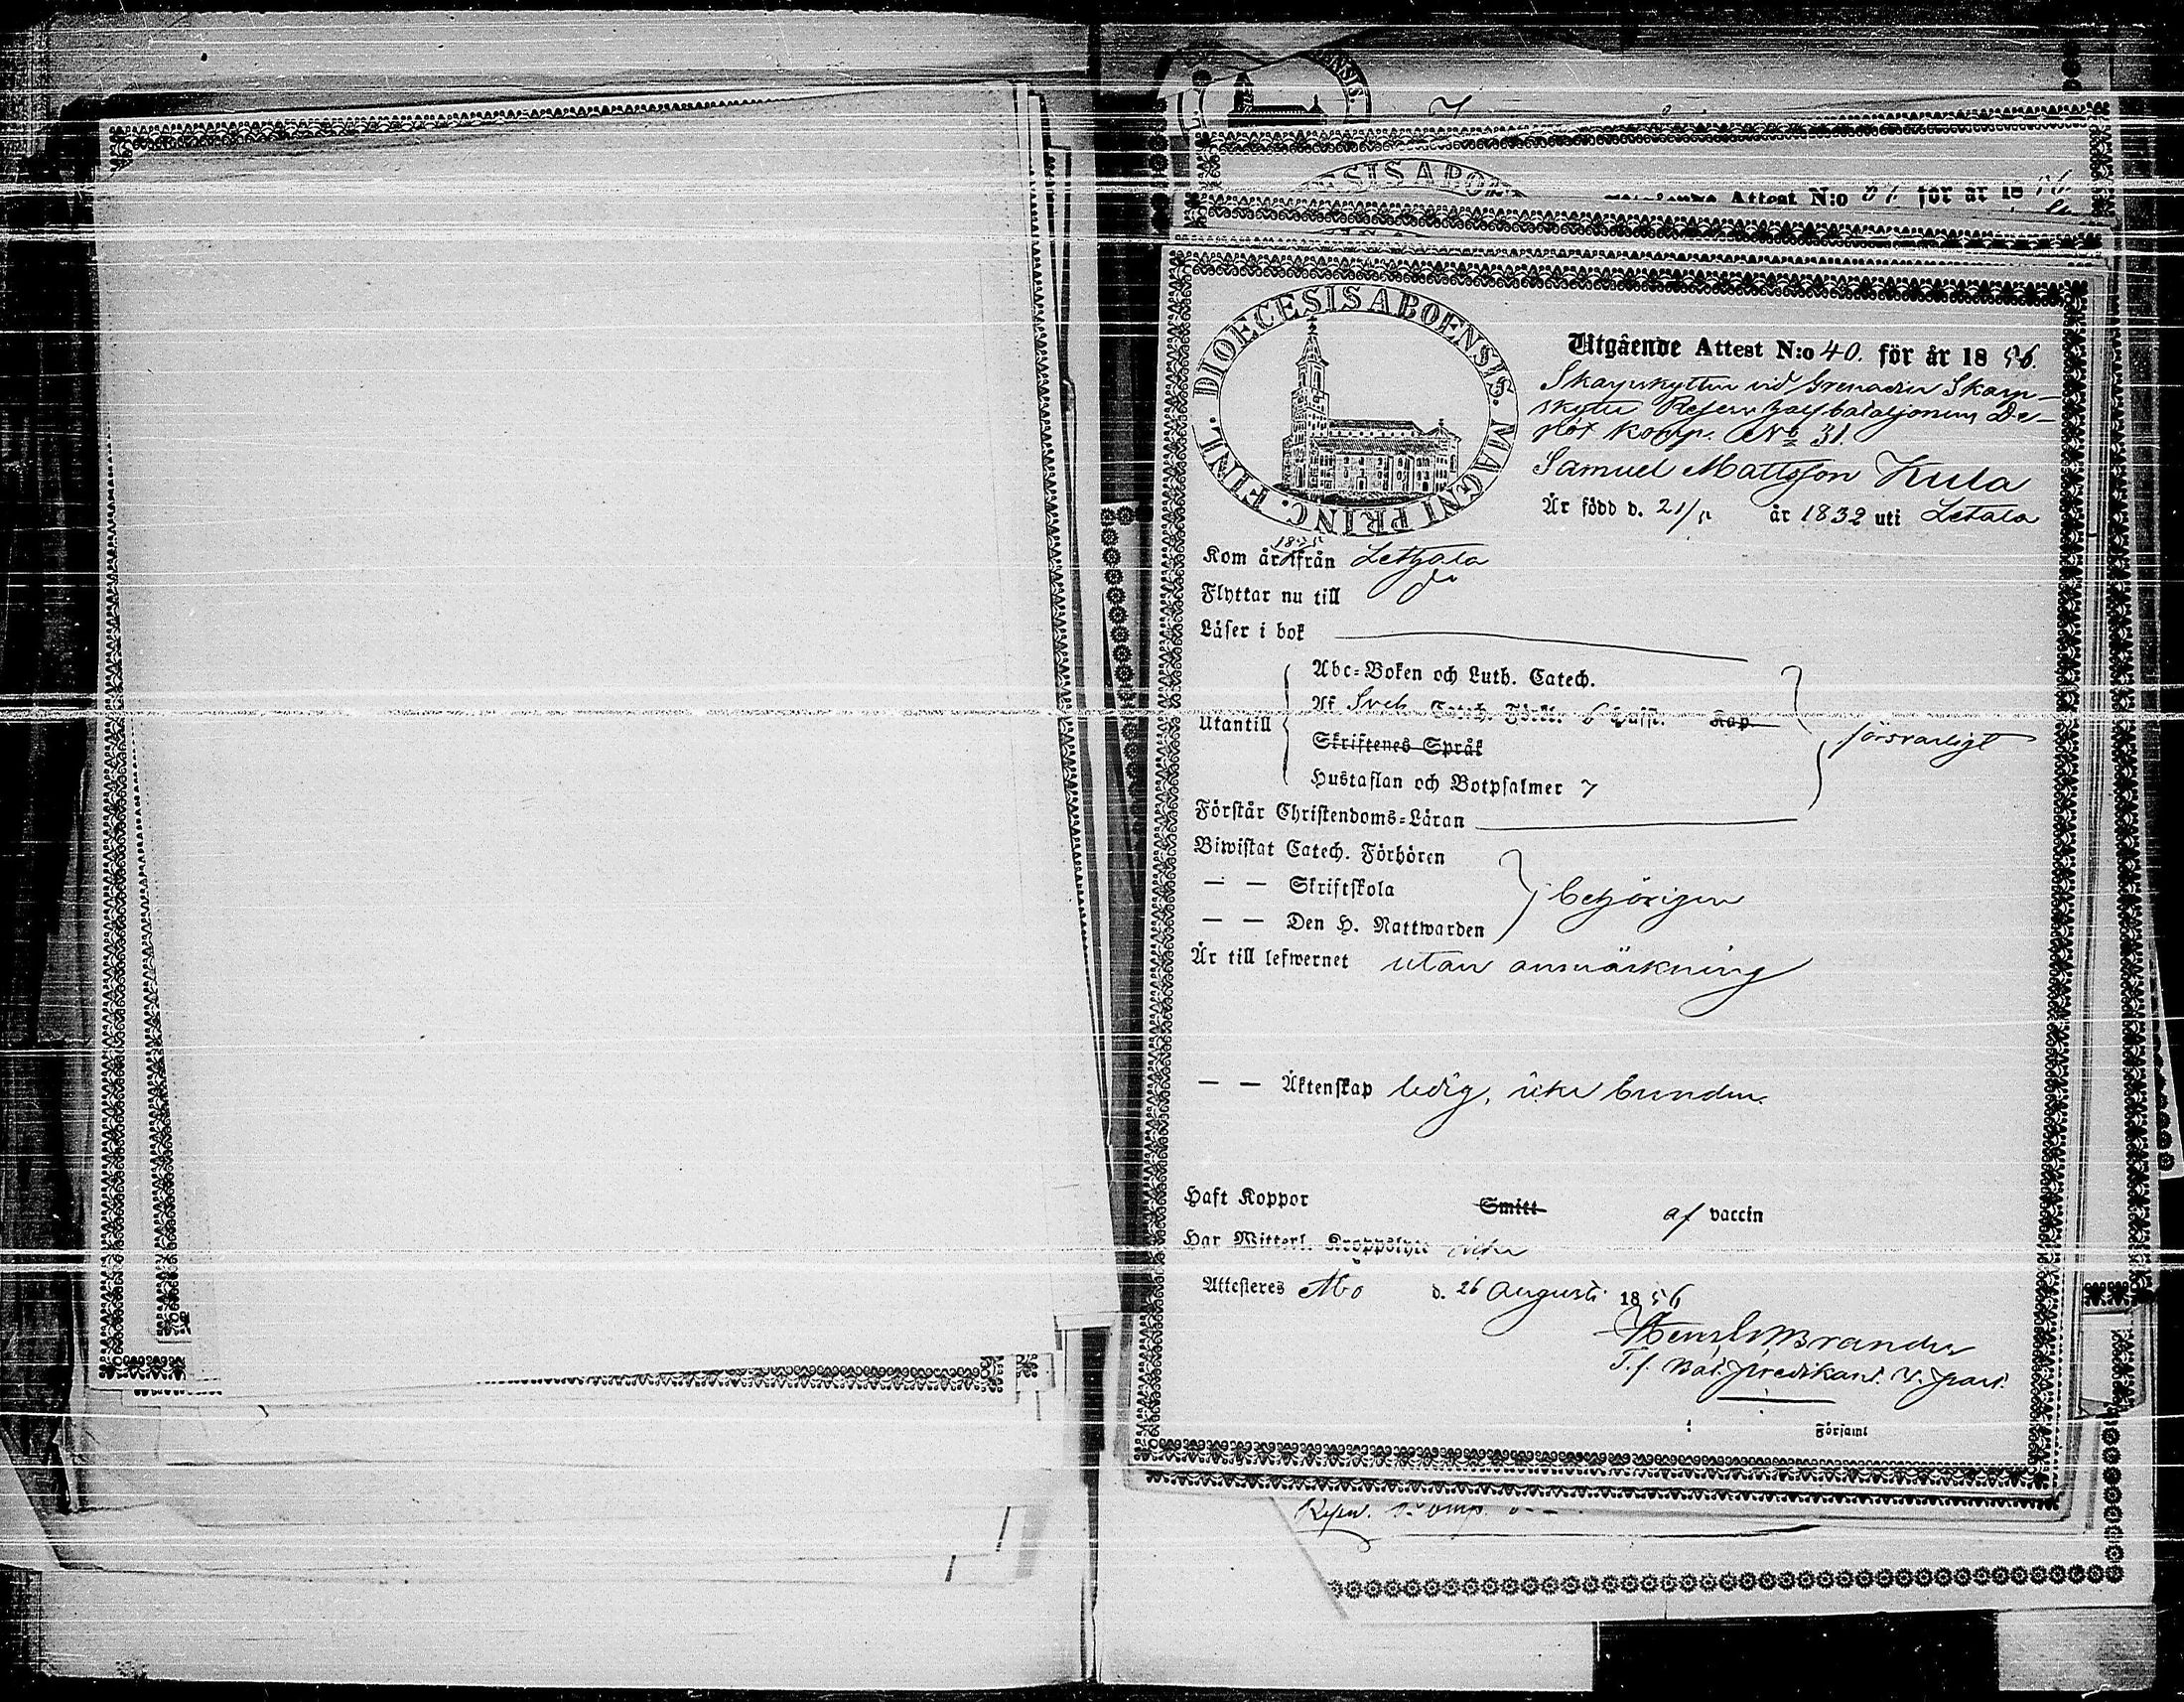 Attest N:o 37. för år 18 56.
DIOECESIS ABOENSIS. MAGNI PRINC. FINL.
Utgående Attest N:o 40. för år 18 56.
Skarpskytten vid Grenadier Skarp-
skytte Reserv half bataljonens De-
pot Komp. No 31.
Samuel Mattsson Kula
Är född d. 21/5 år 1832 uti Letala
Kom år 1855 ifrån Lethala
Flyttar nu till do
Läser i bok
Utantill
Abc-Boken och Luth. Catech.
Af Sveb. Catech. Förkl. 6 Hufst. Kap
Skriftenes Språk
Hustaflan och Botpsalmer 7
försvarligt
Förstår Christendoms-Läran
Biwistat Catech. Förhören
— — Skriftskola
— — Den H. Nattwarden
behörigen
Är till lefwernet utan anmärkning
— — Äktenskap ledig, icke bunden.
Haft Koppor Smitt af vaccin
Har Witterl. Kroppslyte icke
Attesteres Åbo d. 26 Augusti 1856
Brander
T.f. Bat. predikant.
Församl